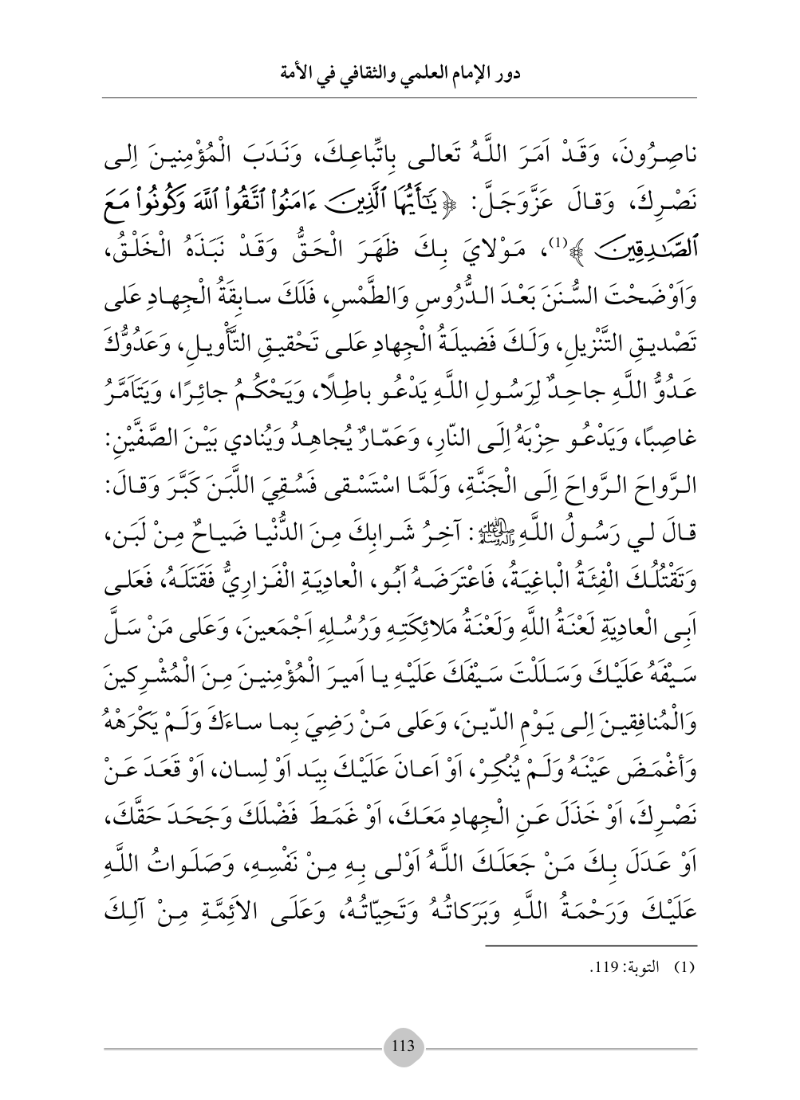 دور الإمام العلمي والثقافي في الأمة
ناصِرُونَ، وَقَدْ اَمَرَ اللَّهُ تَعالى بِاتِّباعِكَ، وَنَدَبَ الْمُؤْمِنينَ اِلى
نَصْرِكَ، وَقالَ عَزَّوَجَلَّ: ﴿يَٰٓأَيُّهَا ٱلَّذِينَ ءَامَنُوا۟ ٱتَّقُوا۟ ٱللَّهَ وَكُونُوا۟ مَعَ
ٱلصَّٰدِقِينَ﴾(1)، مَوْلايَ بِكَ ظَهَرَ الْحَقُّ وَقَدْ نَبَذَهُ الْخَلْقُ،
وَاَوْضَحْتَ السُّنَنَ بَعْدَ الدُّرُوسِ وَالطَّمْسِ، فَلَكَ سابِقَةُ الْجِهادِ عَلى
تَصْديقِ التَّنْزيلِ، وَلَكَ فَضيلَةُ الْجِهادِ عَلى تَحْقيقِ التَّأْويلِ، وَعَدُوُّكَ
عَدُوُّ اللَّهِ جاحِدٌ لِرَسُولِ اللَّهِ يَدْعُو باطِلًا، وَيَحْكُمُ جائِرًا، وَيَتَاَمَّرُ
غاصِبًا، وَيَدْعُو حِزْبَهُ اِلَى النّارِ، وَعَمّارٌ يُجاهِدُ وَيُنادي بَيْنَ الصَّفَّيْنِ:
الرَّواحَ الرَّواحَ اِلَى الْجَنَّةِ، وَلَمَّا اسْتَسْقى فَسُقِيَ اللَّبَنَ كَبَّرَ وَقالَ:
قالَ لي رَسُولُ اللَّهِ ﷺ: آخِرُ شَرابِكَ مِنَ الدُّنْيا ضَياحٌ مِنْ لَبَن،
وَتَقْتُلُكَ الْفِئَةُ الْباغِيَةُ، فَاعْتَرَضَهُ اَبُو، الْعادِيَةِ الْفَزارِيُّ فَقَتَلَهُ، فَعَلى
اَبِى الْعادِيَةِ لَعْنَةُ اللَّهِ وَلَعْنَةُ مَلائِكَتِهِ وَرُسُلِهِ اَجْمَعينَ، وَعَلى مَنْ سَلَّ
سَيْفَهُ عَلَيْكَ وَسَلَلْتَ سَيْفَكَ عَلَيْهِ يا اَميرَ الْمُؤْمِنينَ مِنَ الْمُشْرِكينَ
وَالْمُنافِقينَ اِلى يَوْمِ الدّينَ، وَعَلى مَنْ رَضِيَ بِما ساءَكَ وَلَمْ يَكْرَهْهُ
وَأغْمَضَ عَيْنَهُ وَلَمْ يُنْكِرْ، اَوْ اَعانَ عَلَيْكَ بِيَد اَوْ لِسان، اَوْ قَعَدَ عَنْ
نَصْرِكَ، اَوْ خَذَلَ عَنِ الْجِهادِ مَعَكَ، اَوْ غَمَطَ فَضْلَكَ وَجَحَدَ حَقَّكَ،
اَوْ عَدَلَ بِكَ مَنْ جَعَلَكَ اللَّهُ اَوْلى بِهِ مِنْ نَفْسِهِ، وَصَلَواتُ اللَّهِ
عَلَيْكَ وَرَحْمَةُ اللَّهِ وَبَرَكاتُهُ وَتَحِيّاتُهُ، وَعَلَى الاَئِمَّةِ مِنْ آلِكَ
(1) التوبة: 119.
113